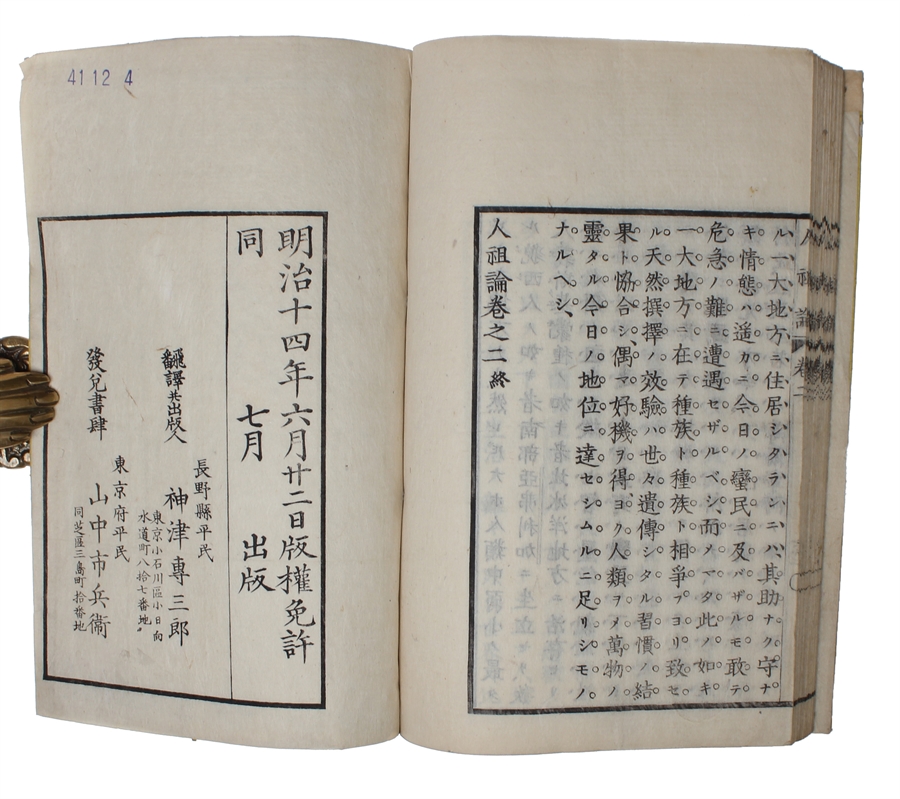 ル、一大地方ニ、住居シタランニハ、其助ナク、守ナ
キ情態ハ遥カニ今日ノ蠻民ニ及バザルモ敢テ
危急ノ難ニ遭遇セザルベシ、而メマタ此ノ如キ
一大地方ニ在テ種族ト種族ト相爭フヨリ致セ
ル天然撰擇ノ效驗ハ世々遺傳シタル習慣ノ結
果ト恊合シ、偶マ好機ヲ得ヨク人類ヲメ萬物ノ
靈タル今日ノ地位ニ達セシムルニ足リシモノ
ナルベシ、
人祖論卷之二 終
人祖論 卷二
明治十四年六月廿二日版權免許
同 七月 出版
長野縣平民
飜譯共出版人 神津專三郎
東京小石川區小日向
水道町八拾七番地
東京府平民
發兌書肆 山中市兵衞
同芝區三島町拾番地
4112 4